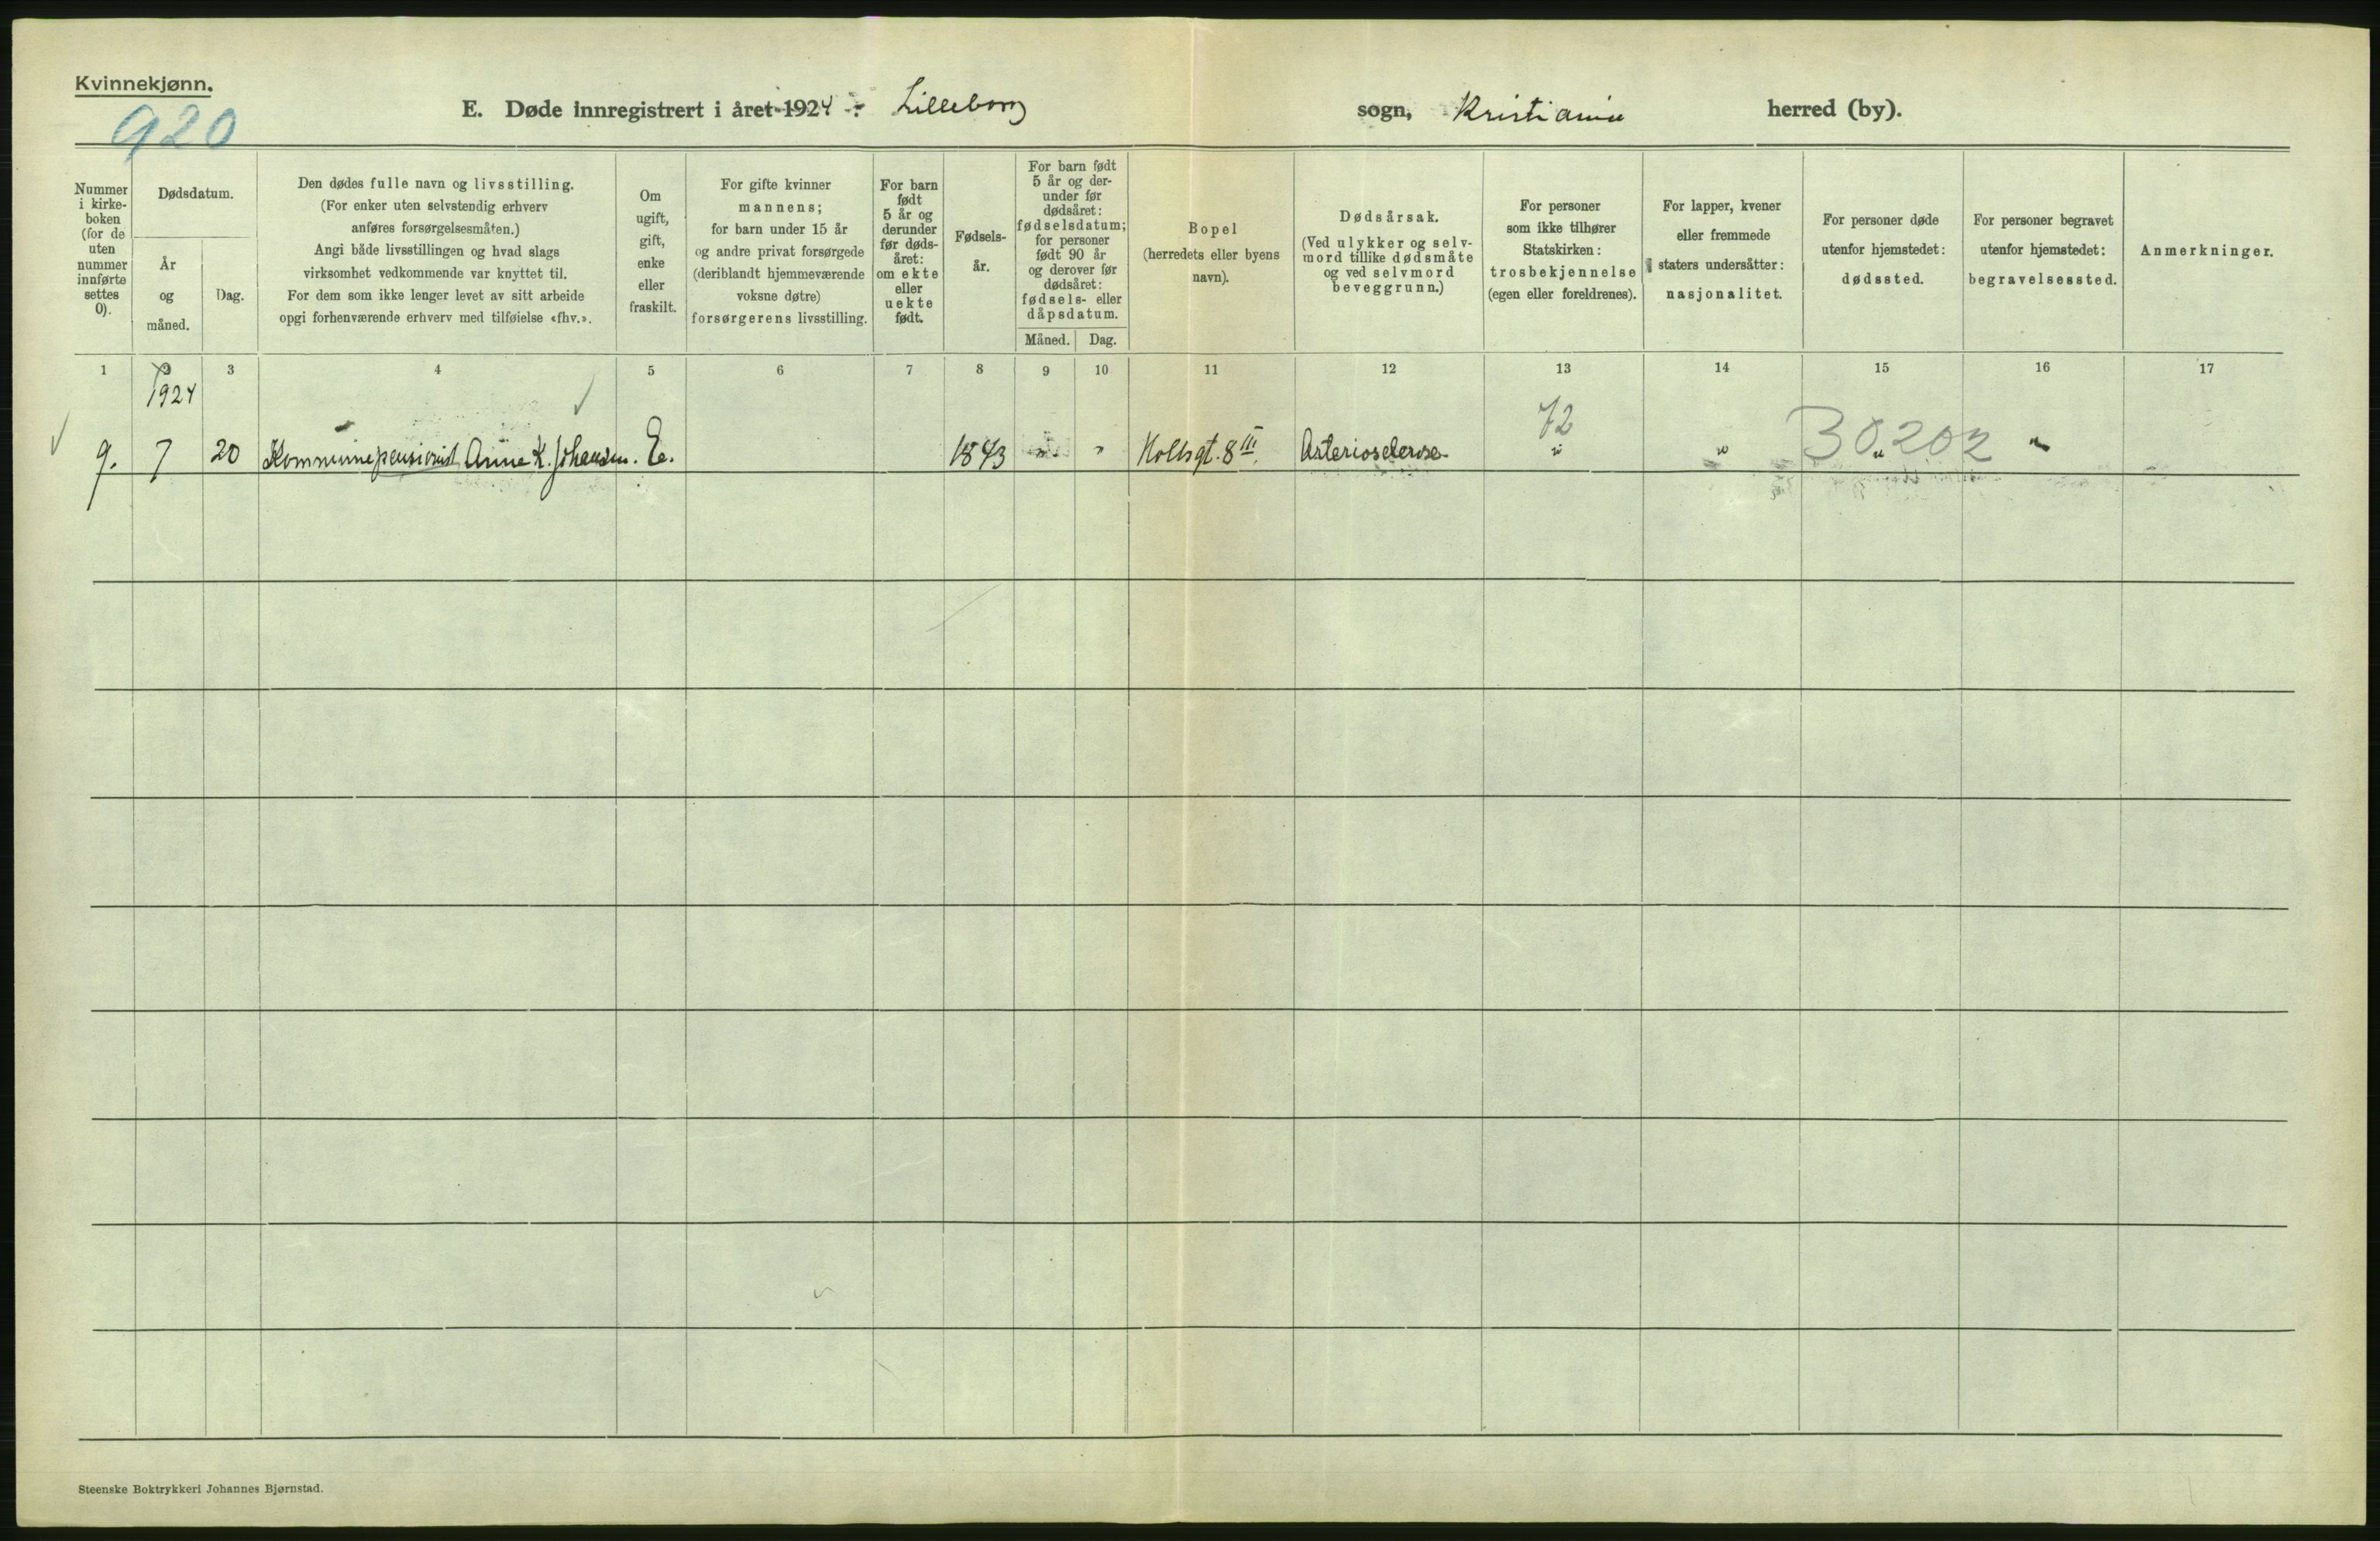 Kvinnekjønn.
920
E. Døde innregistrert i året 1924 : Lilleborg sogn, Kristiania herred (by).
Nummer
i kirke-
boken
(for de
uten
nummer
innførte
settes
0).
Dødsdatum.
År
og
måned.
Dag.
Den dødes fulle navn og livsstilling.
(For enker uten selvstendig erhverv
anføres forsørgelsesmåten.)
Angi både livsstillingen og hvad slags
virksomhet vedkommende var knyttet til.
For dem som ikke lenger levet av sitt arbeide
opgi forhenværende erhverv med tilføielse «fhv.».
Om
ugift,
gift,
enke
eller
fraskilt.
For gifte kvinner
mannens;
for barn under 15 år
og andre privat forsørgede
(deriblandt hjemmeværende
voksne døtre)
forsørgerens livsstilling.
For barn
født
5 år og
derunder
før døds-
året:
om ekte
eller
uekte
født.
Fødsels-
år.
For barn født
5 år og der-
under før
dødsåret:
fødselsdatum;
for personer
født 90 år
og derover før
dødsåret:
fødsels- eller
dåpsdatum.
Måned. Dag.
Bopel
(herredets eller byens
navn).
Dødsårsak.
(Ved ulykker og selv-
mord tillike dødsmåte
og ved selvmord
beveggrunn.)
For personer
som ikke tilhører
Statskirken:
trosbekjennelse
(egen eller foreldrenes).
For lapper, kvener
eller fremmede
staters undersåtter:
nasjonalitet.
For personer døde
utenfor hjemstedet:
dødssted.
For personer begravet
utenfor hjemstedet:
begravelsessted.
Anmerkninger.
1 2 3 4 5 6 7 8 9 10 11 12 13 14 15 16 17
1924
72
9. 7 20 Kommunepensionist Anne K. Johansen. E. 1843 " " Holtsgt. 8 III. Arteriosclerose " " " 30.202 "
Steenske Boktrykkeri Johannes Bjørnstad.